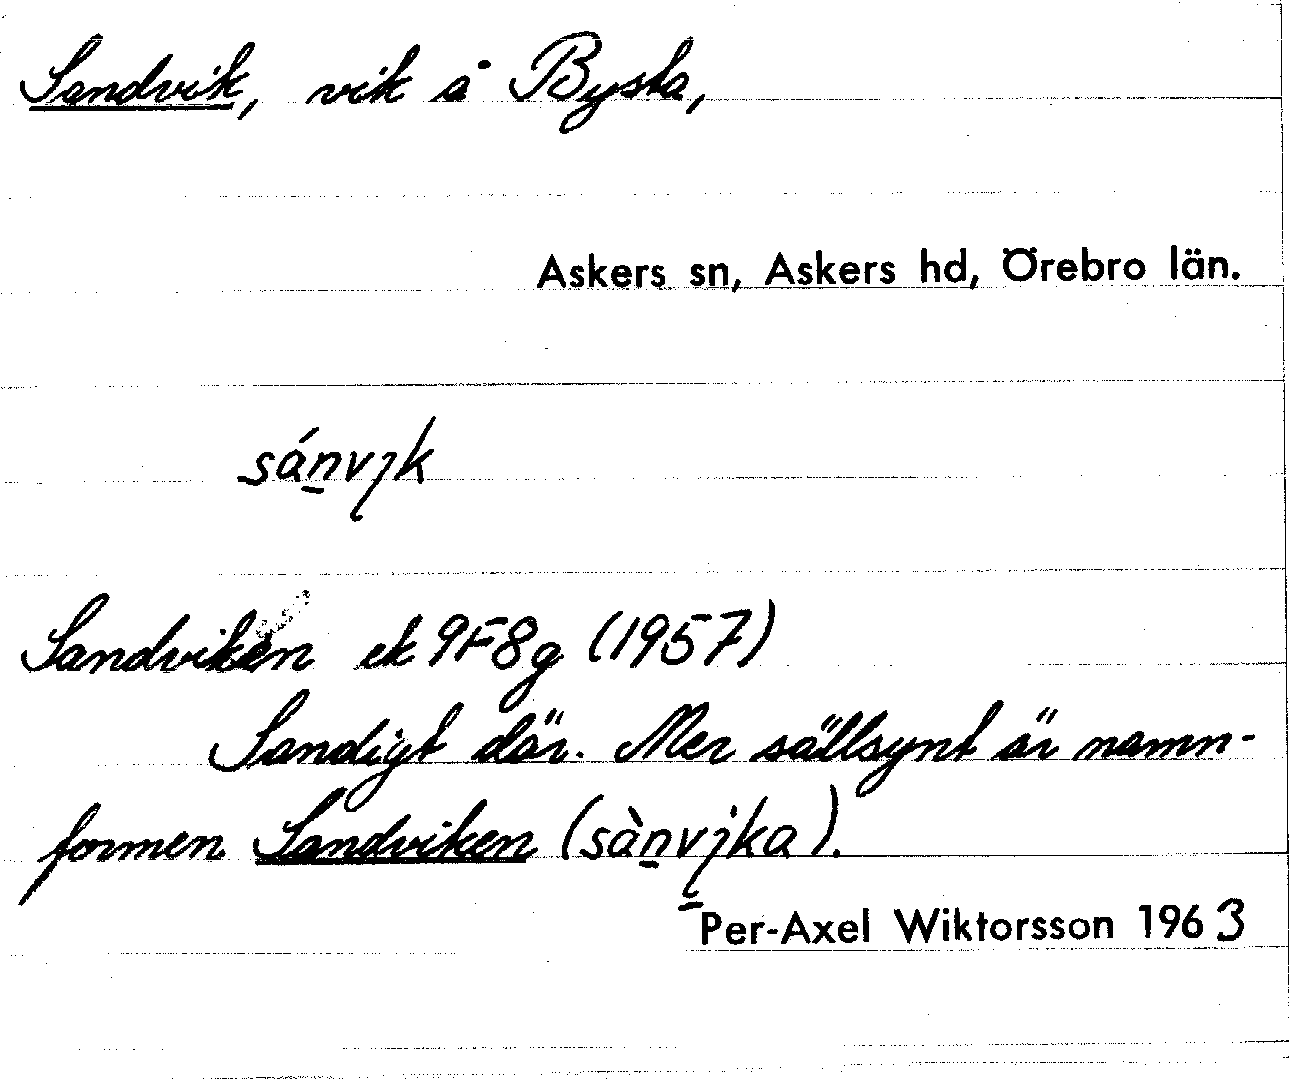 Sandvik, vik å Bysta,
Askers sn, Askers hd, Örebro län.
sánvik
Sandviken ek 9F8g (1957)
Sandigt där. Mer sällsynt är namn-
formen Sandviken (sànvika).
Per-Axel Wiktorsson 1963